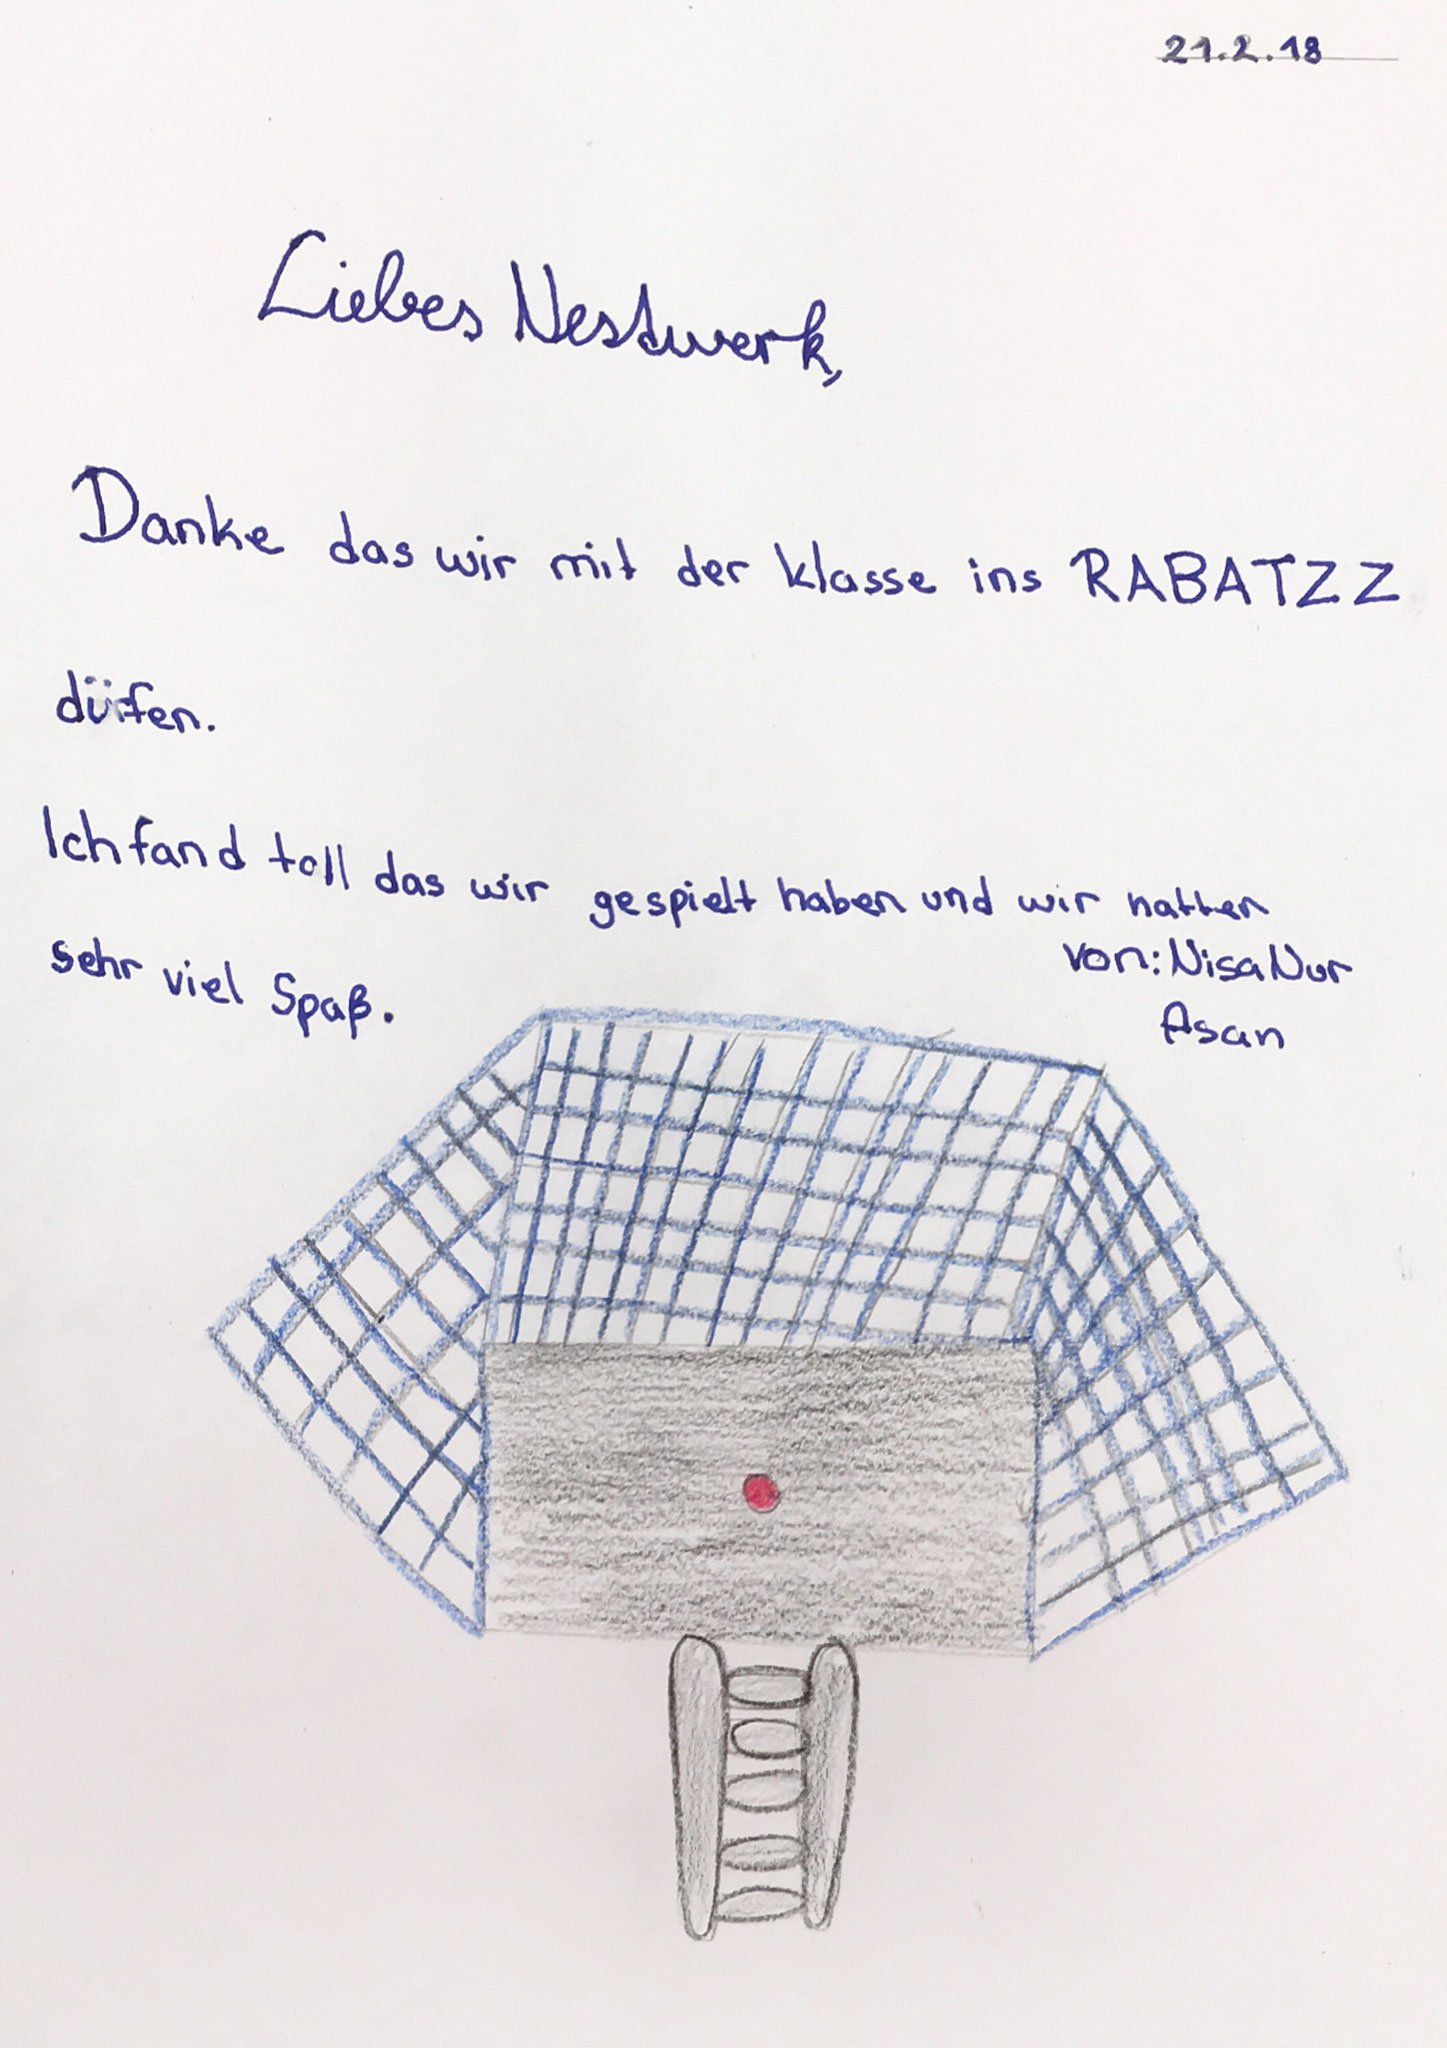 21.2.18
Liebes Nestwerk,
Danke das wir mit der klasse ins RABATZZ
dürfen.
Ich fand toll das wir gespielt haben und wir hatten
sehr viel Spaß.
von: NisaNur
Asan